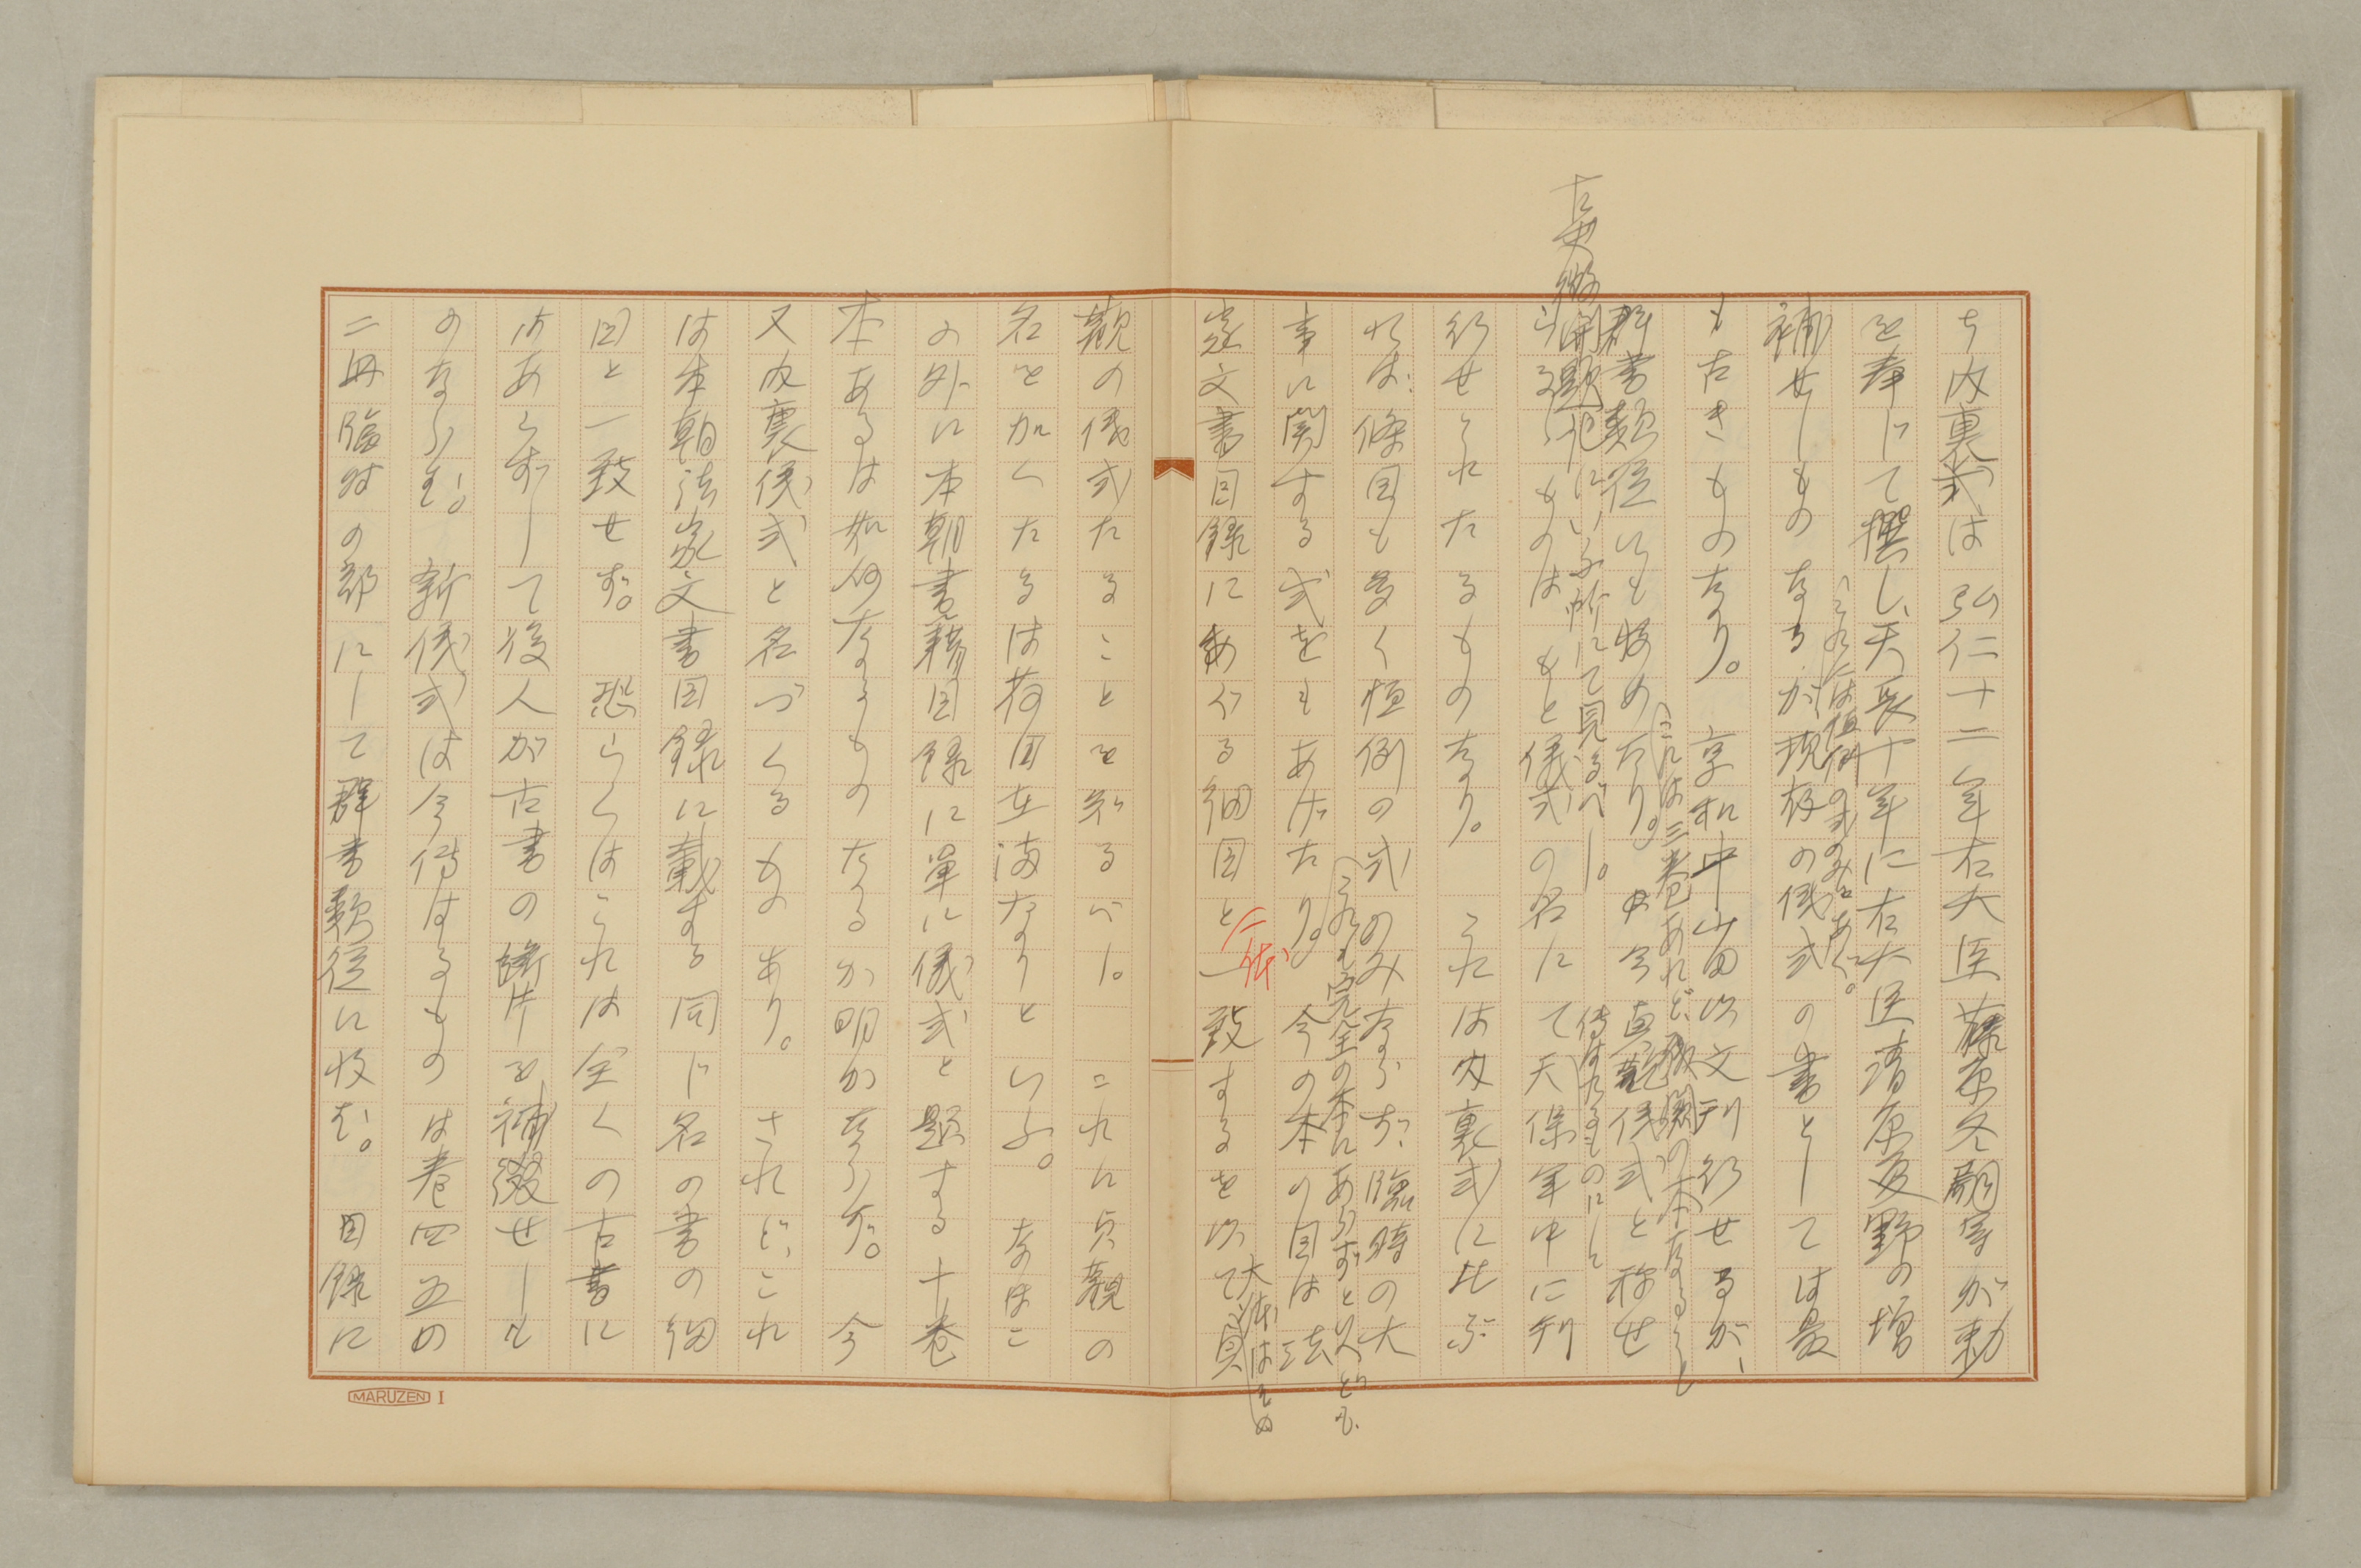 ち内裏式は弘仁十二年右大臣藤原冬嗣等が勅
を奉じて撰し、天長十年に右大臣清原夏野の増
補せしものなるが、現存の儀式の書としては最
(これには恒例の式のみをあぐ。
も古きものなり。享和中山田以文刊行せるが、
(これは三巻あれど、残闕の本なるべし
群書類従にも収めたり。今貞観儀式と称せ
傳はれるものにして
古史徴開題記にいふ所にて見るべし。
らるゝものはもと儀式の名にて天保年中に刊
行せられたるものなり。これは内裏式に比ぶ
れば、條目も多く恒例の式のみならず、臨時の大
事に関する式をもあげたり。今の本の目は法
(これも完全の本にあらずといへども、
家文書目録にあぐる細目と一致するを以て貞
大体
大体はその
観の儀式たることを知るべし。これに貞観の
名をかくたるは荷田在満なりといふ。なほこ
の外に本朝書籍目録に単に儀式と題する十巻
本あるは如何なるものなるか明かならず。今
又内裏儀式と名づくるものあり。されど、これ
は本朝法家文書目録に載する同じ名の書の細
目と一致せず。恐らくはこれは全くの古書に
はあらずして後人が古書の断片を補綴せしも
のならむ。新儀式は今傳はるものは巻四五の
二冊臨時の部にして群書類従に収む。目録に
MARUZEN I